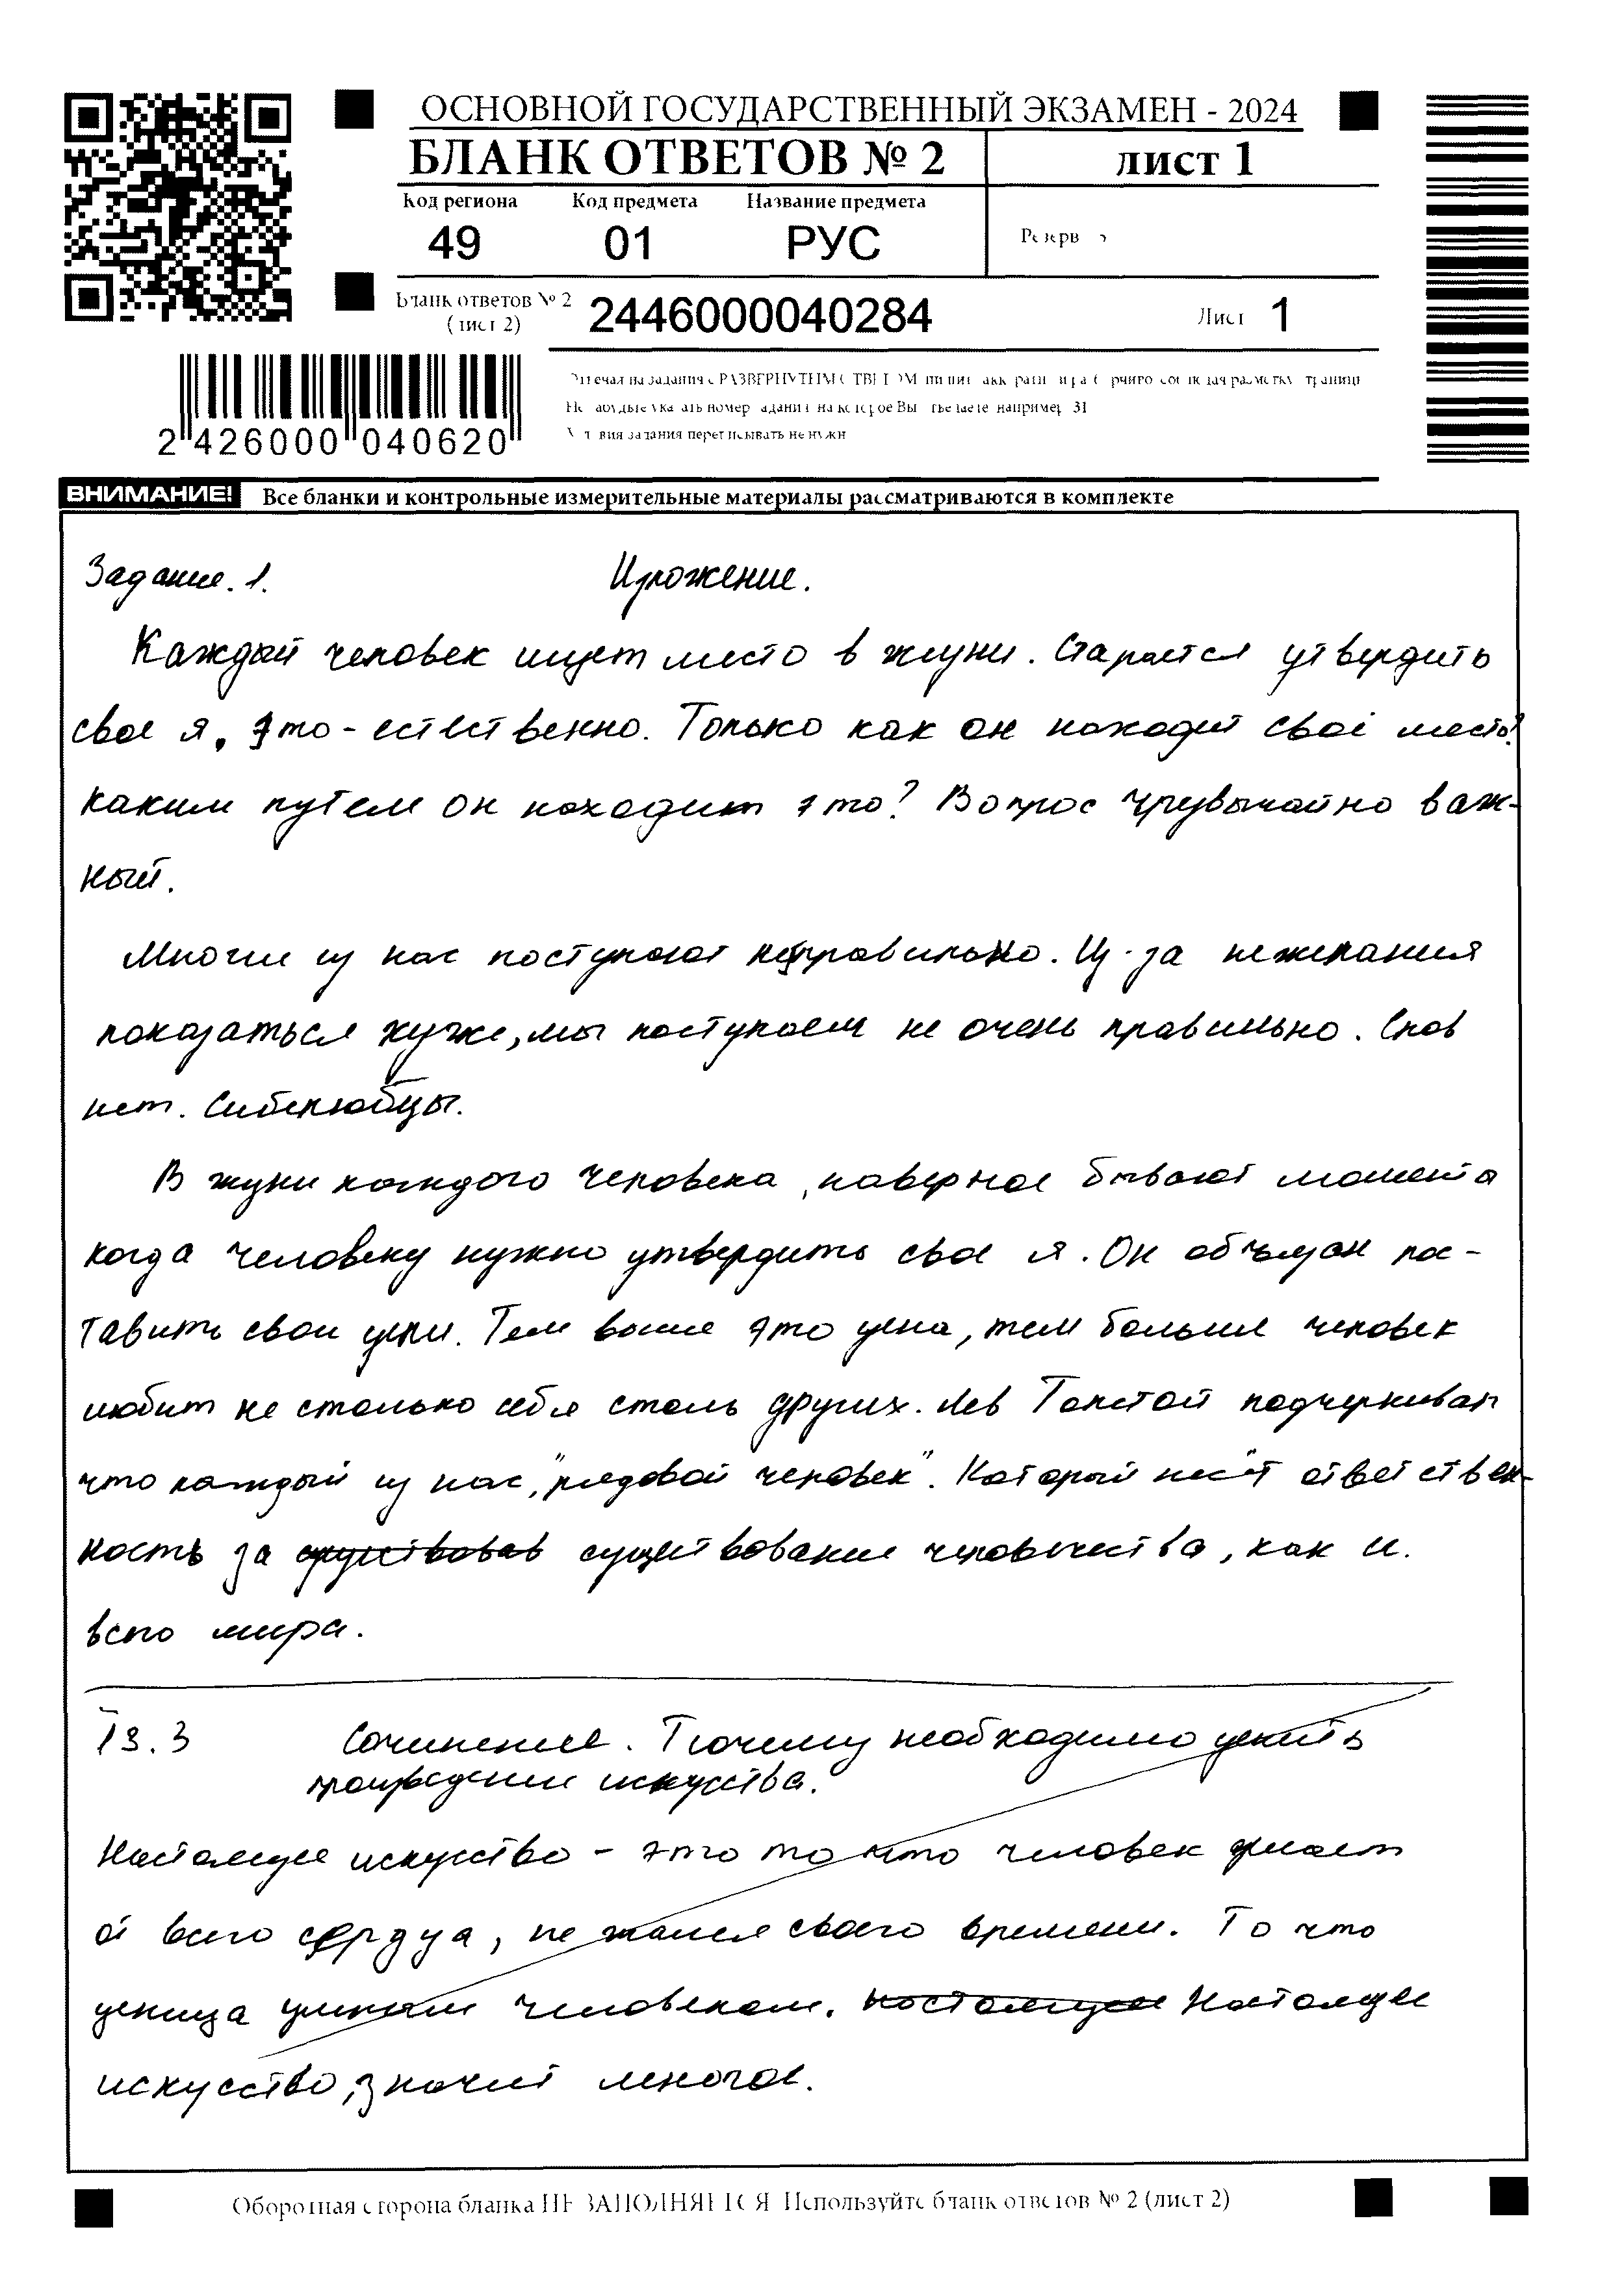 ОСНОВНОЙ ГОСУДАРСТВЕННЫЙ ЭКЗАМЕН - 2024
БЛАНК ОТВЕТОВ № 2 лист 1
Код региона Код предмета Название предмета
49 01 РУС
Бланк ответов № 2 (лист 2) 2446000040284 Лист 1
2 426000 040620
ВНИМАНИЕ! Все бланки и контрольные измерительные материалы рассматриваются в комплекте
Задание. 1. Изложение.
Каждый человек ищет место в жизни. Старается утвердить
свое я. Это - естественно. Только как он находит своё место?
Каким путем он находит это? Вопрос чрезвычайно важ-
ный.
Многие из нас поступают неправильно. Из-за нежелания
показаться хуже, мы поступаем не очень правильно. Слов
нет.
В жизни каждого человека, наверное бывают момента
когда человеку нужно утвердить свое я. Он обязан пос-
тавить свои цели. Тем выше это цена, тем больше человек
любит не столько себя столь других. Лев Толстой подчеркивал
что каждый из нас, "рядовой человек". Который несёт ответствен-
ность за существование человечества, как и.
всего мира.
13.3 Сочинение. Почему необходимо ценить
произведении искуства.
Настоящее искуство - это то что человек делает
от всего сердца, не жалея своего времени. То что
человеком. Настоящее
искусство, значит многое.
Оборотная сторона бланка НЕ ЗАПОЛНЯЕТСЯ. Используйте бланк ответов № 2 (лист 2)